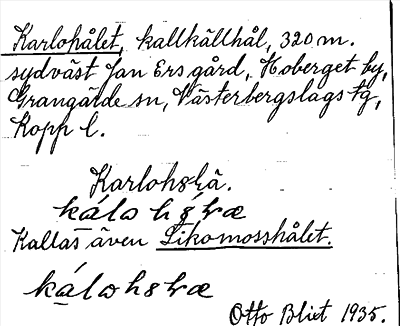 Karlohålet, kallkällhål, 320 m.
sydväst Jan Ers gård, Hoberget by,
Grangärde sn, Västerbergslags tg,
Kopp l.
Karlohshä.
Kallas även Likomosshålet.
Otto Blixt 1935.